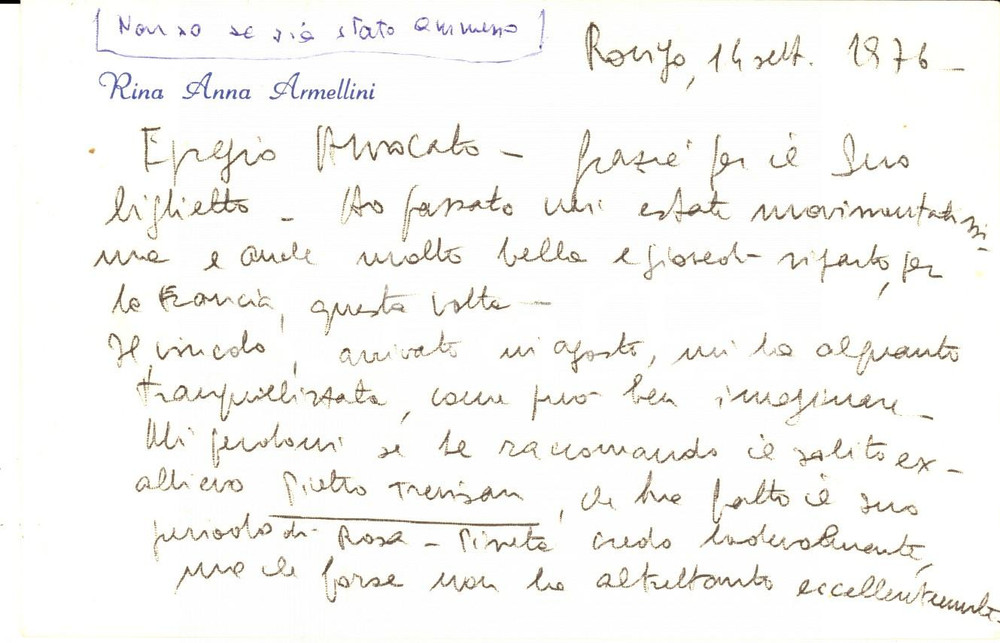 [Non so se sia stato ammesso]
Rovigo, 14 sett. 1976 -
Rina Anna Armellini
Egregio Avvocato - grazie per il Suo
biglietto - Ho passato un'estate movimentatissi-
ma e anche molto bella e giovedì riparto, per
la Francia, questa volta -
Il vincolo, arrivato in agosto, mi ha alquanto
tranquillizzata, come può ben immaginare -
Mi perdoni se Le raccomando il solito ex-
allievo Pietro Trevisan, che ha fatto il suo
periodo di Rosa - Pineta credo lodevolmente,
ma che forse non ha altrettanto eccellentemente